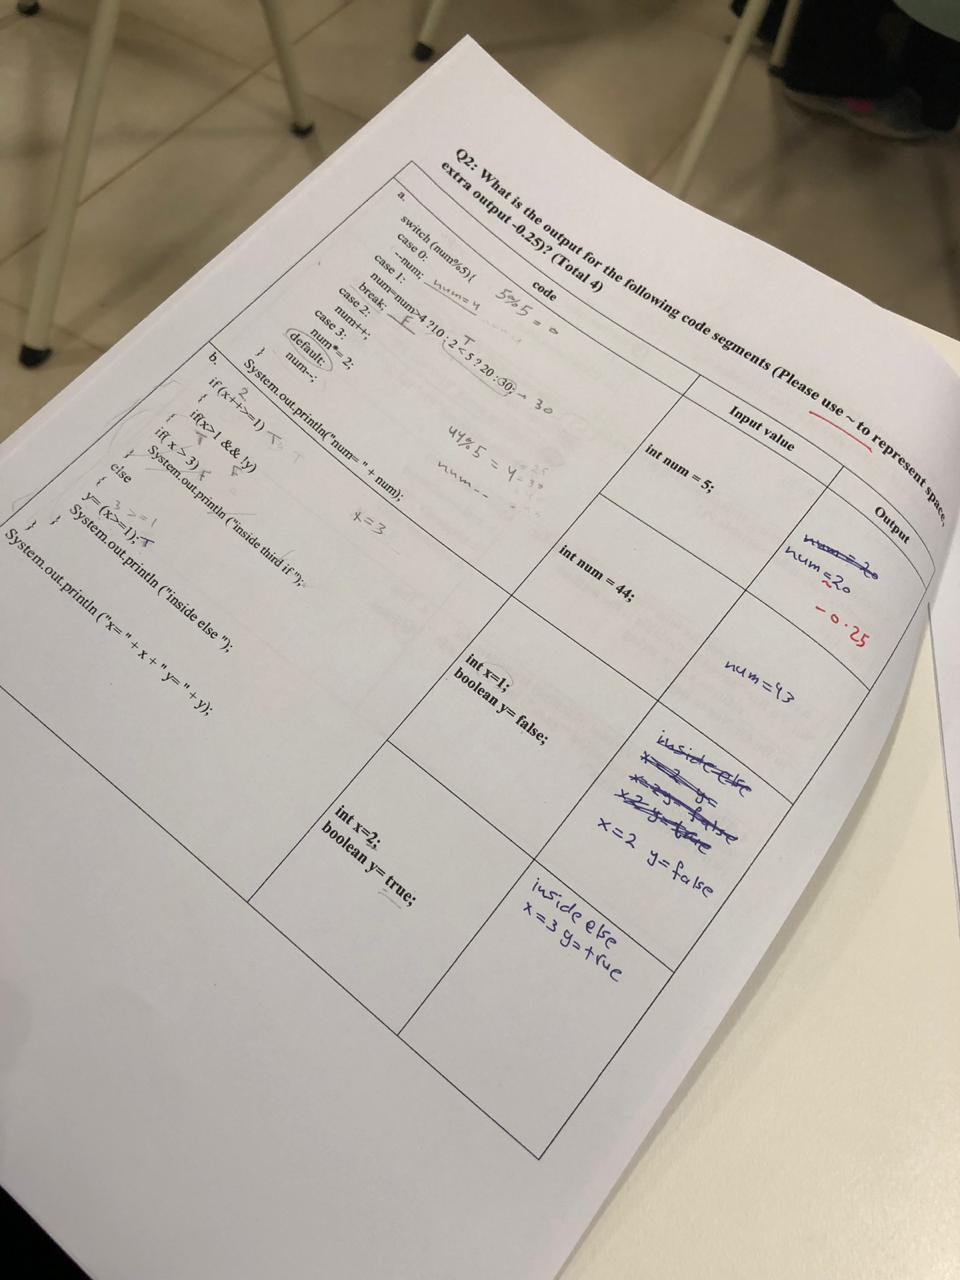 Q2: What is the output for the following code segments (Please use ~ to represent space,
extra output -0.25)? (Total 4)
code
Input value
Output
a.
switch (num%5){
5%5 = 0
case 0:
--num; num=4
case 1:
num=num>4?10 : 2<5 ? 20 :30; → 30
F
T
break;
case 2:
num++;
case 3:
num*= 2;
default:
num--;
}
System.out.println("num= " + num);
44%5 = 4
num--
int num = 5;
num = 20
num = 20
~
-0.25
int num = 44;
num = 43
b.
2
if (x++>=1) T
{
if(x>1 && !y)
T F
if( x > 3) F
System.out.println ("inside third if ");
}
else
{
3 >= 1
y= (x>=1); T
System.out.println ("inside else ");
}
}
System.out.println ("x= " + x + " y= " + y);
x=3
int x=1;
boolean y= false;
inside else
x = 2 y=
x=2 y= false
x 2 y=true
x=2 y=false
int x=2;
boolean y= true;
inside else
x=3 y=true